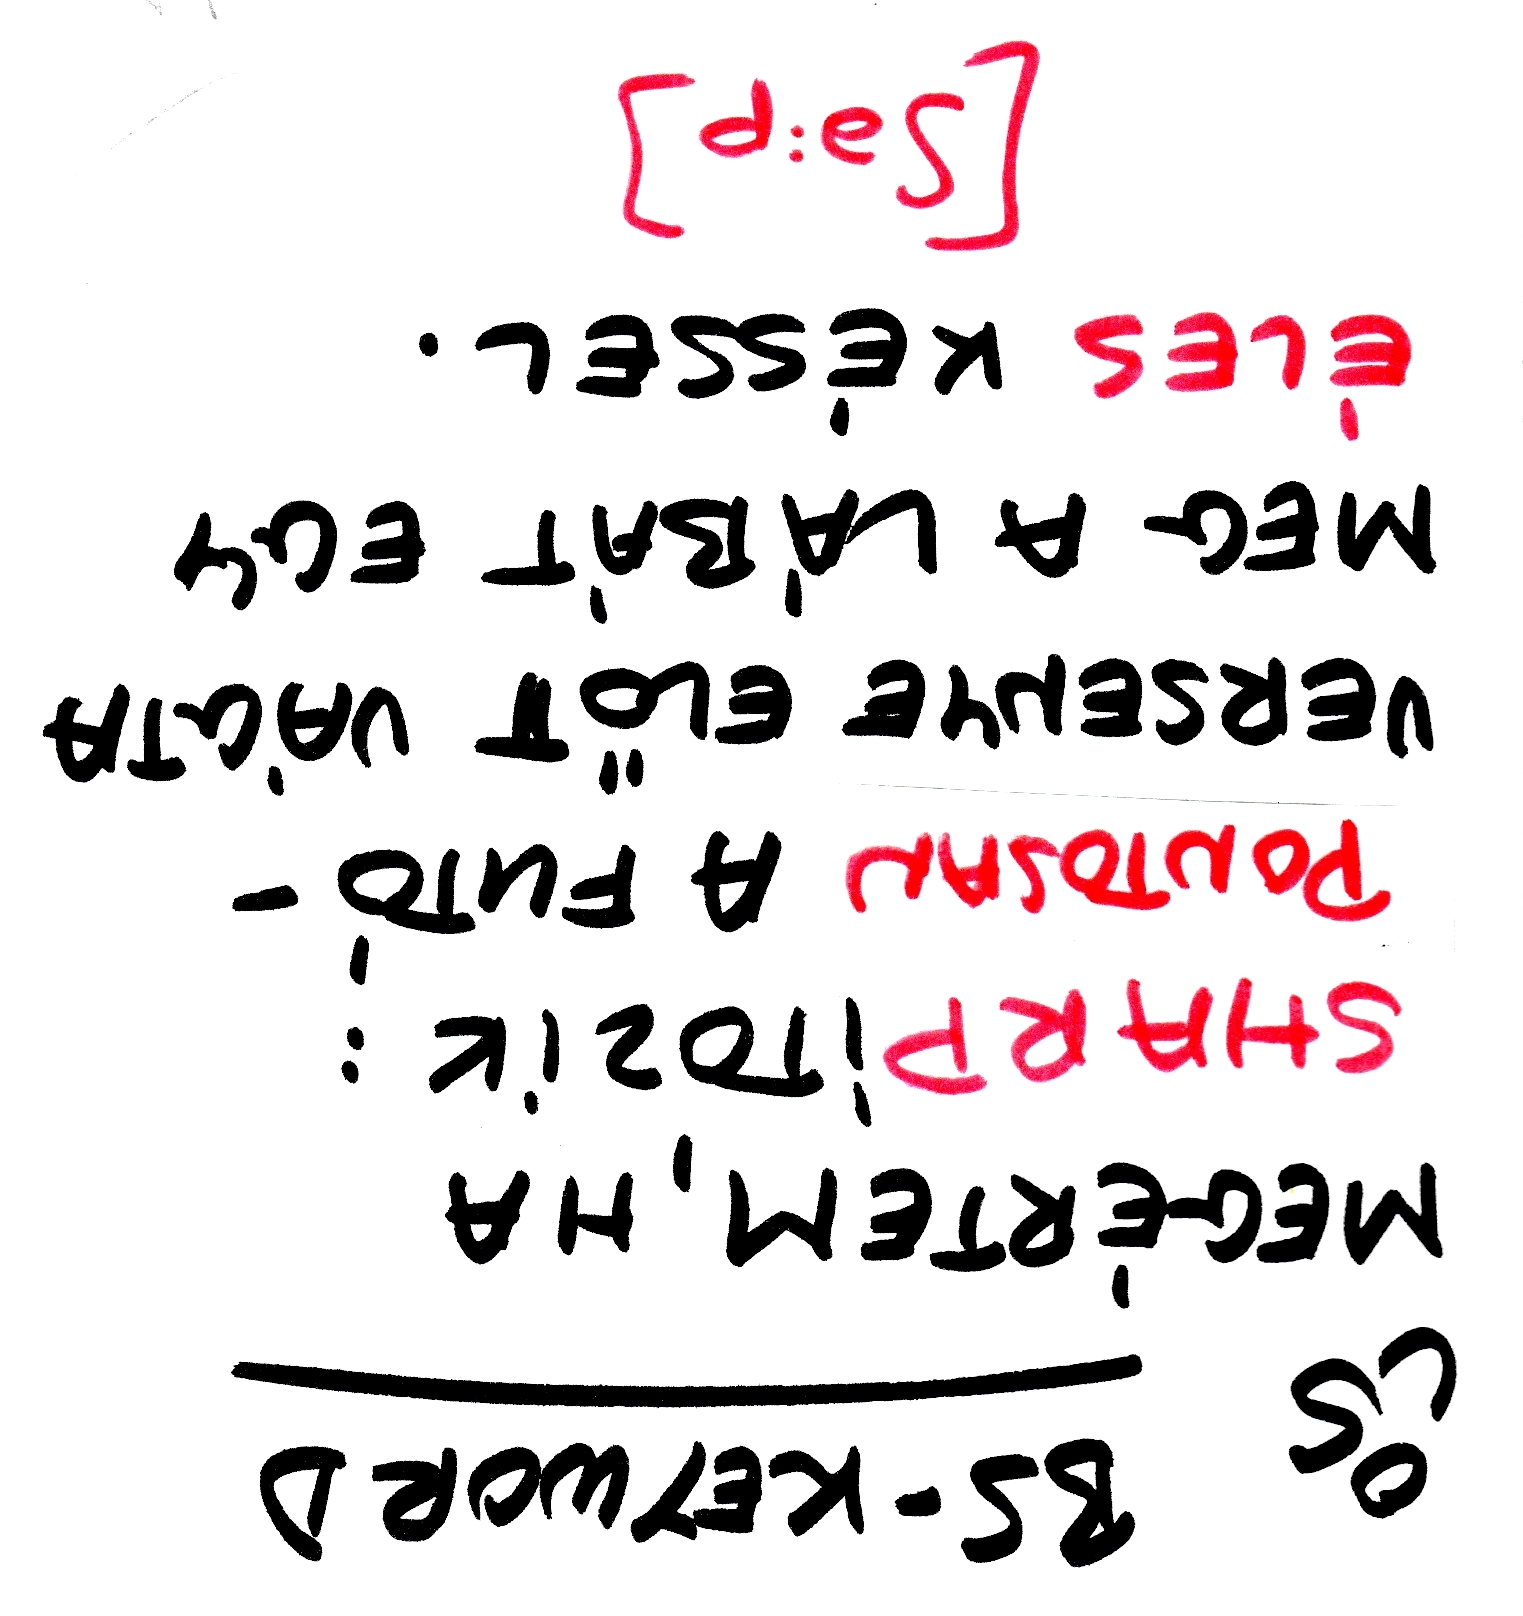 BS-KEYWORD
MEGÉRTEM, HA
SHARPÍTOZIK:
PONTOSAN A FUTÓ-
VERSENYE ELŐTT VÁGTA
MEG A LÁBÁT EGY
ÉLES KÉSSEL.
[ʃa:p]